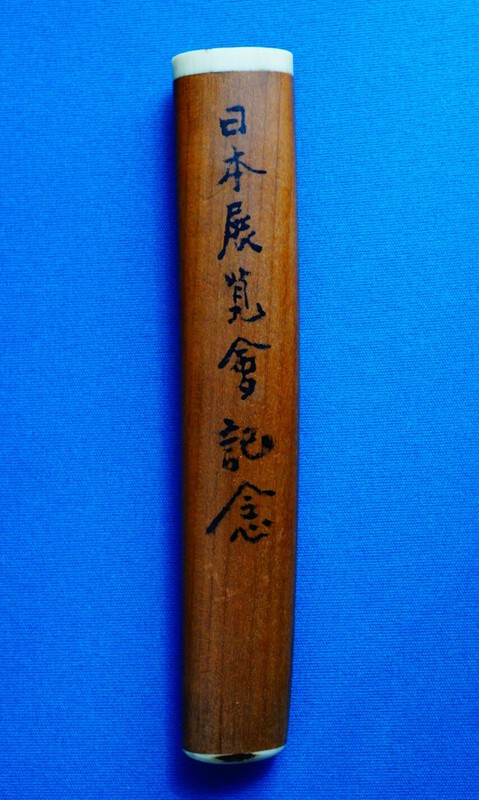 日本展覧會記念